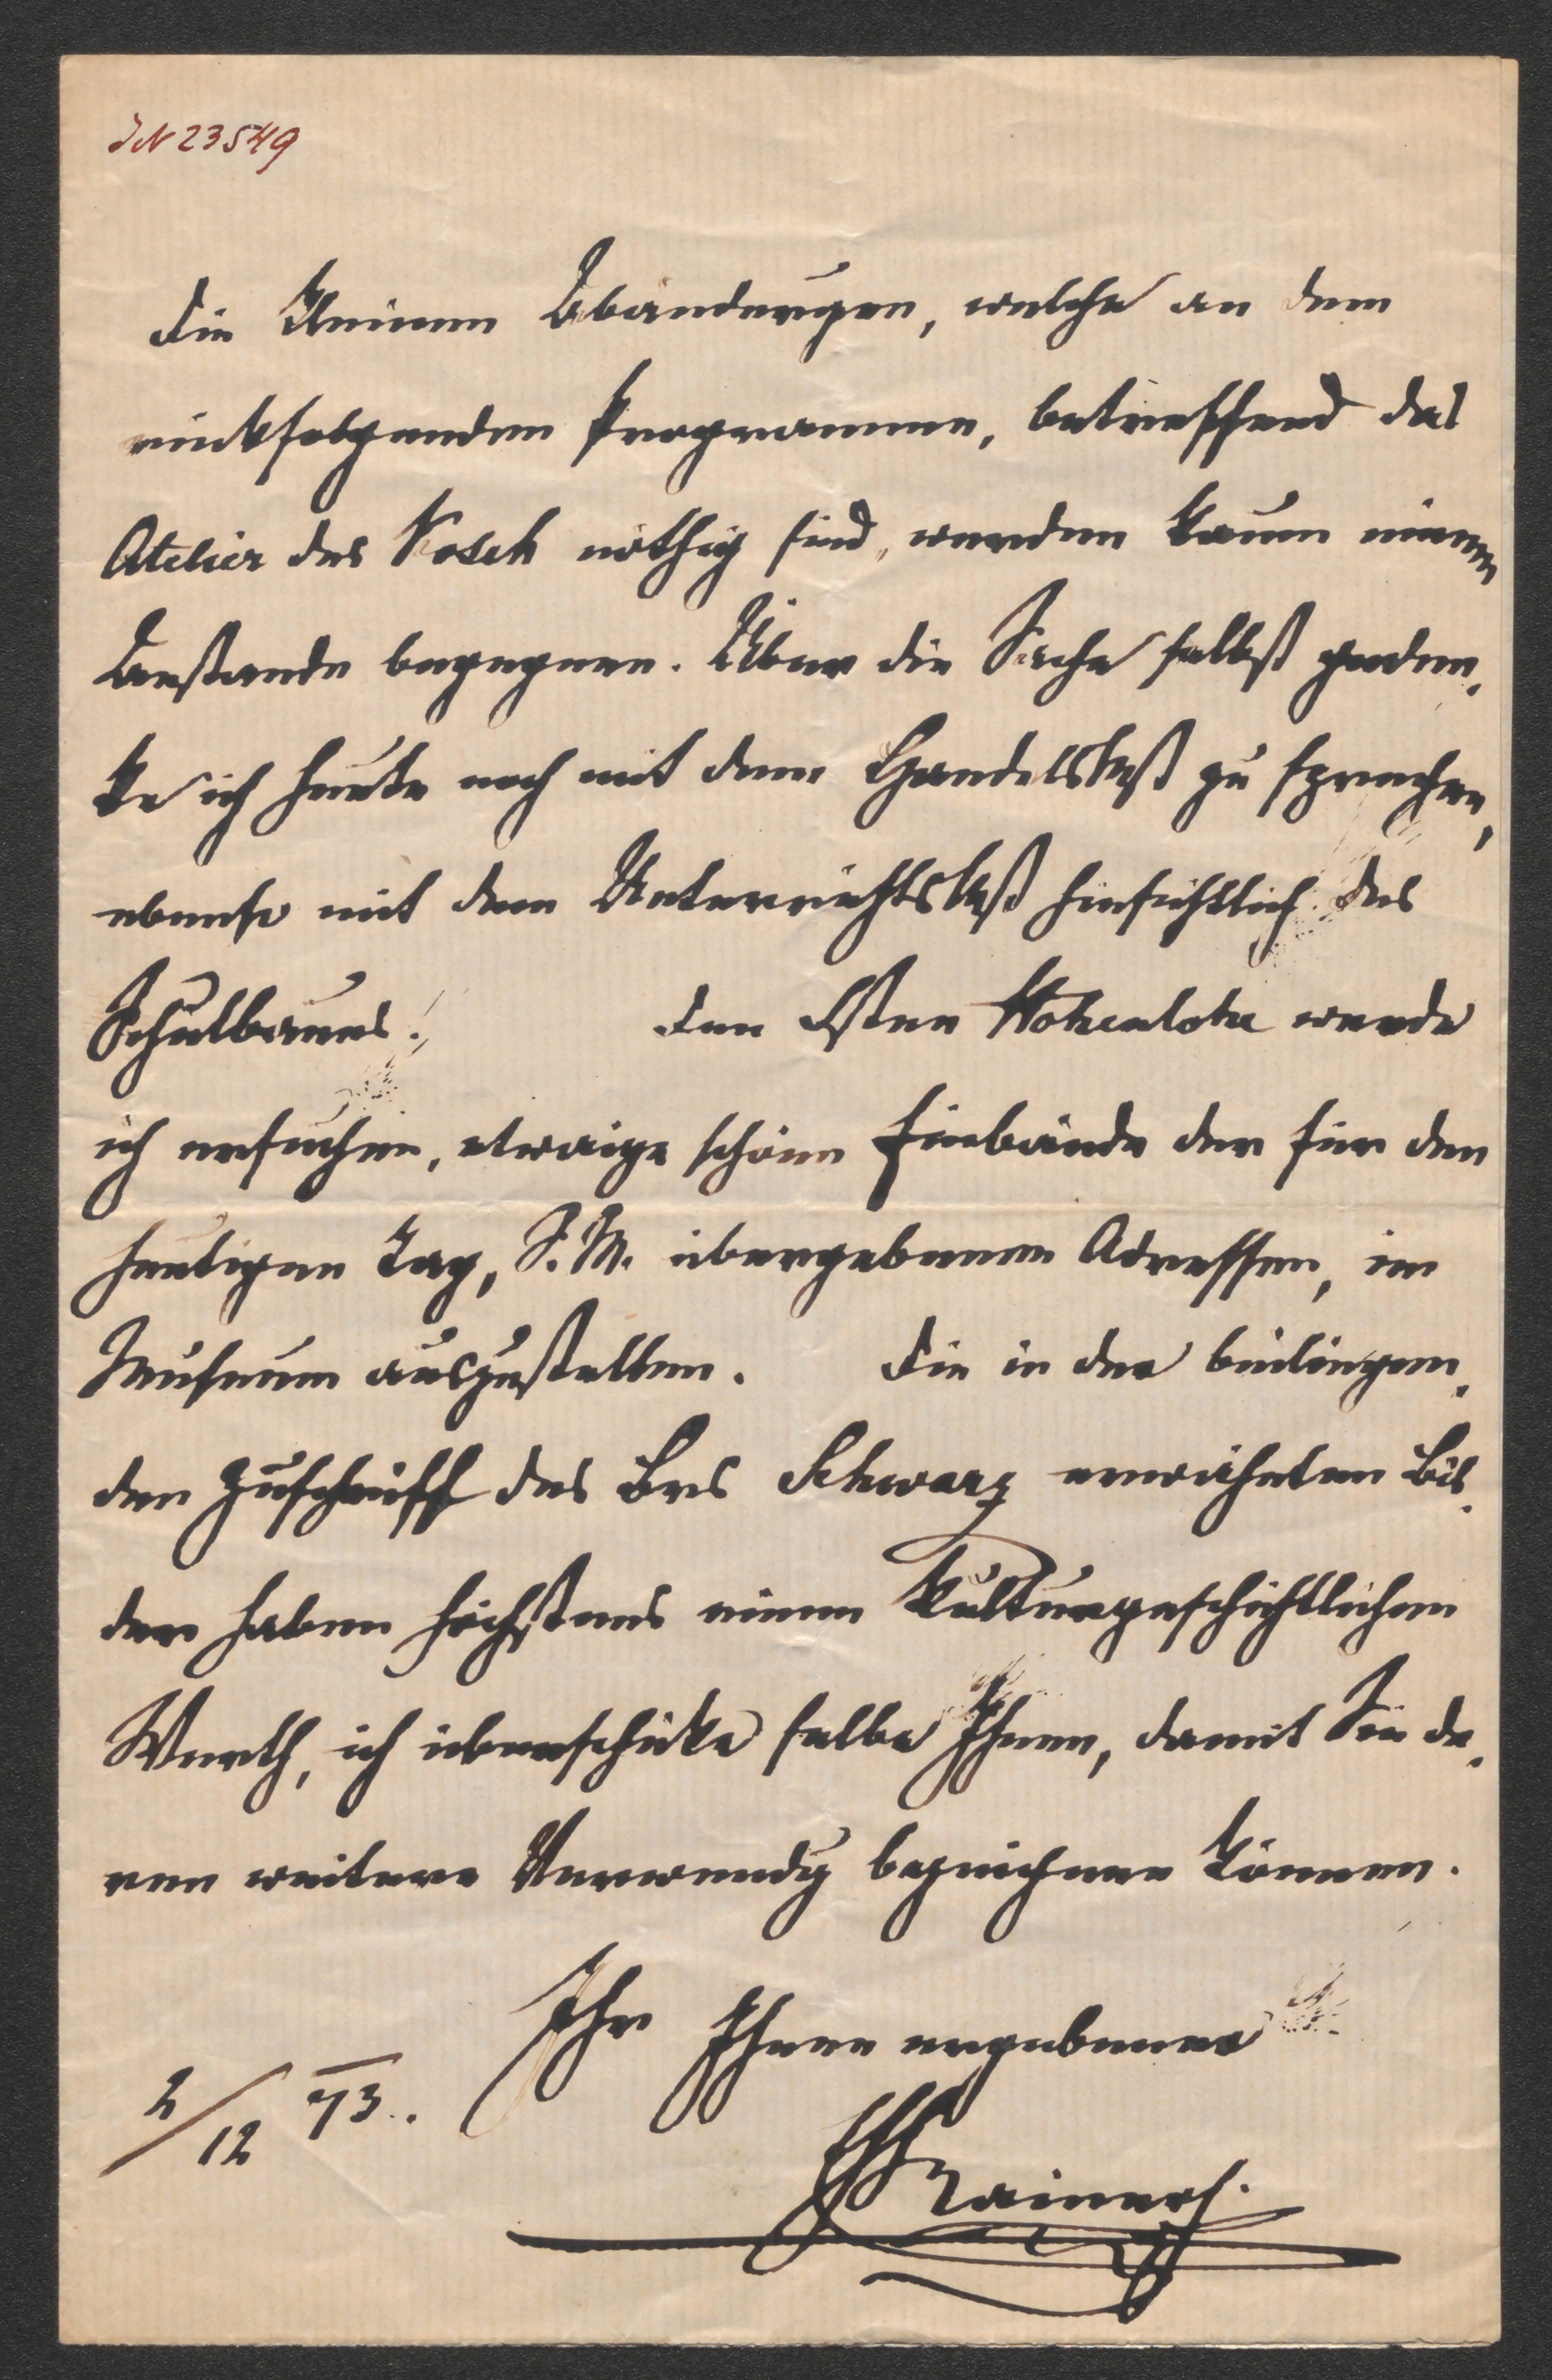 IN 23549
Die kleinen Abänderungen, welche an dem
rückfolgenden Programme, betreffend das
Atelier des Kosch nöthig sind, werden kaum einem
Anstande begegnen. Über die Sache selbst geden,
ke ich heute noch mit dem Handels zu sprechen,
ebenso mit dem Unterrichts hinsichtlich des
Schulbaues. Den Fsten Hohenlohe werde
ich ersuchen, etwaige schöne Einbände der für den
heutigen Tag, S. M. übergebenen Adressen, im
Museum auszustellen. Die in der beiliegen,
den Zuschrift des Brs Schwarz erwähnten Bil,
der haben höchstens einen kulturgeschichtlichen
Werth, ich überschicke selbe Ihnen, damit Sie de,
ren weitere Verwendg bezeichnen können.
Ihr Ihnen ergebener
2/12 73.
EHRainer